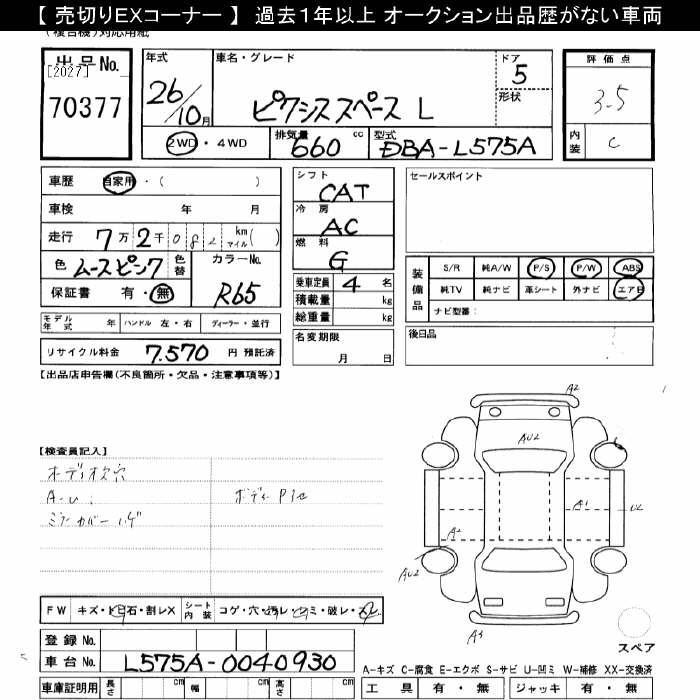 【 売切りEXコーナー 】 過去1年以上 オークション出品歴がない車両
(複合機)対応用紙
出品No.
[2027]
70377
年式
26/10月
車名・グレード
ピクシススペース L
ドア
5
形状
評価点
3.5
内装
C
2WD・4WD
排気量
660 cc
型式
DBA-L575A
車歴 自家用・( )
車検 年 月
走行 7万2千082 km マイル( )
色 ムースピンク
色替
カラーNo.
R65
保証書 有・無
シフト
CAT
冷房
AC
燃料
G
乗車定員 4 名
積載量 kg
総重量 kg
名変期限
月 日
セールスポイント
装備品
S/R 純A/W P/S P/W ABS
純TV 純ナビ 革シート 外ナビ エアB
ナビ型番:
後日品
モデル年式 年 ハンドル 左・右 ディーラー・並行
リサイクル料金 7.570 円 預託済
【出品店申告欄(不良箇所・欠品・注意事項等)】
【検査員記入】
A-U
ミラーカバーハゲ
A2
AU2
A1
A2
AU2
FW キズ・ト石・割レX
シート内装 コゲ・穴・汚レ・シミ・破レ・スレ
登録No.
車台No. L575A-0040930
車庫証明用 長さ cm 幅 cm 高さ cm
スペア
A-キズ C-腐食 E-エクボ S-サビ U-凹ミ W-補修 XX-交換済
工具 有・無 ジャッキ 有・無